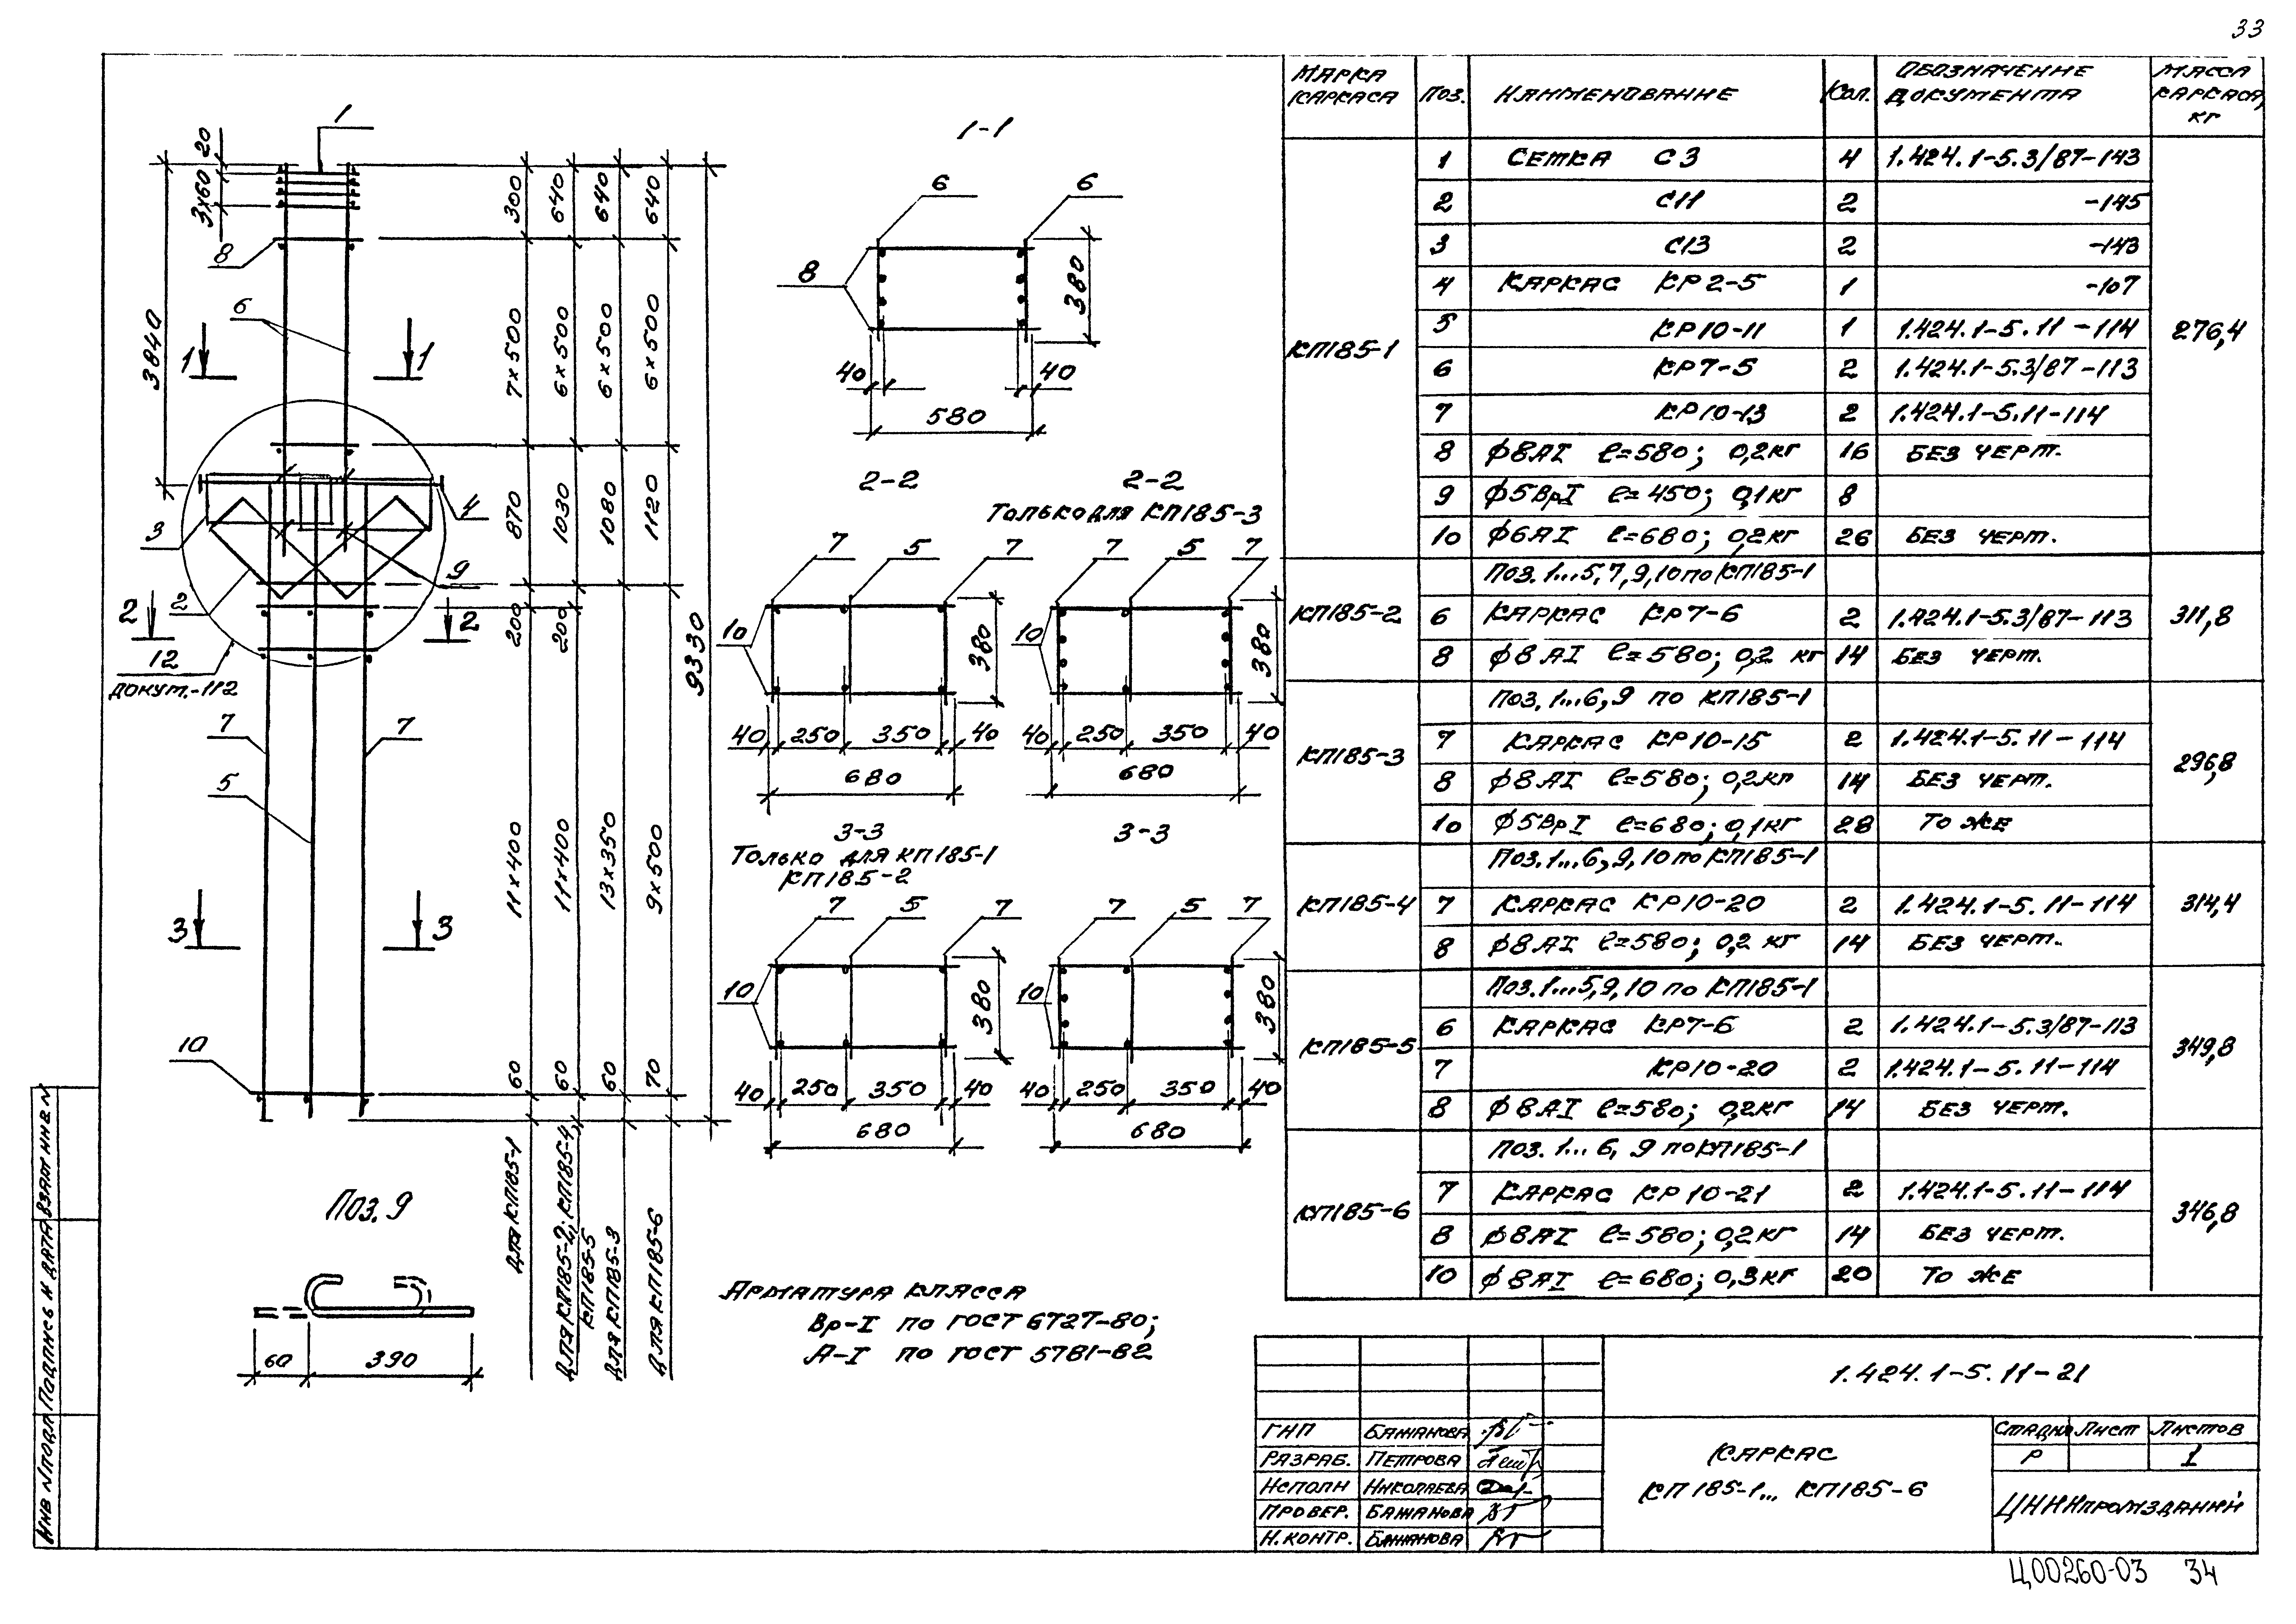 33
МАРКА КАРКАСА ПОЗ. НАИМЕНОВАНИЕ КОЛ. ОБОЗНАЧЕНИЕ ДОКУМЕНТА МАССА КАРКАСА, КГ
КП185-1 276,4
1 СЕТКА С3 4 1.424.1-5.3/87-143
2 С11 2 -145
3 С13 2 -143
4 КАРКАС КР2-5 1 -107
5 КР10-11 1 1.424.1-5.11-114
6 КР7-5 2 1.424.1-5.3/87-113
7 КР10-13 2 1.424.1-5.11-114
8 ϕ8АI ℓ=580; 0,2кг 16 БЕЗ ЧЕРТ.
9 ϕ5ВрI ℓ=450; 0,1кг 8
10 ϕ6АI ℓ=680; 0,2кг 26 БЕЗ ЧЕРТ.
КП185-2 311,8
Поз. 1...5,7,9,10 по КП185-1
6 КАРКАС КР7-6 2 1.424.1-5.3/87-113
8 ϕ8АI ℓ=580; 0,2 кг 14 БЕЗ ЧЕРТ.
КП185-3 296,8
Поз. 1...6,9 по КП185-1
7 КАРКАС КР10-15 2 1.424.1-5.11-114
8 ϕ8АI ℓ=580; 0,2кг 14 БЕЗ ЧЕРТ.
10 ϕ5ВрI ℓ=680; 0,1кг 28 ТО ЖЕ
КП185-4 314,4
Поз. 1...6,9,10 по КП185-1
7 КАРКАС КР10-20 2 1.424.1-5.11-114
8 ϕ8АI ℓ=580; 0,2 кг 14 БЕЗ ЧЕРТ.
КП185-5 349,8
Поз. 1...5,9,10 по КП185-1
6 КАРКАС КР7-6 2 1.424.1-5.3/87-113
7 КР10-20 2 1.424.1-5.11-114
8 ϕ8АI ℓ=580; 0,2кг 14 БЕЗ ЧЕРТ.
КП185-6 346,8
Поз. 1...6,9 по КП185-1
7 КАРКАС КР10-21 2 1.424.1-5.11-114
8 ϕ8АI ℓ=580; 0,2кг 14 БЕЗ ЧЕРТ.
10 ϕ8АI ℓ=680; 0,3кг 20 ТО ЖЕ
1
20
3х60
8
3840
6
1 1
3
4
9
2
2 2
12
ДОКУМ.-112
7 7
5
3 3
10
300 7х500 870 200 11х400 60 ДЛЯ КП185-1
640 6х500 1030 200 11х400 60 ДЛЯ КП185-2; КП185-4, КП185-5
640 6х500 1080 13х350 60 ДЛЯ КП185-3
640 6х500 1120 9х500 70 ДЛЯ КП185-6
9330
1-1
6 6
8
380
40 40
580
2-2
7 5 7
10
380
40 250 350 40
680
2-2
ТОЛЬКО ДЛЯ КП185-3
7 5 7
10
380
40 250 350 40
680
3-3
ТОЛЬКО ДЛЯ КП185-1
КП185-2
7 5 7
10
380
40 250 350 40
680
3-3
7 5 7
10
380
40 250 350 40
680
Поз. 9
60 390
АРМАТУРА КЛАССА
Вр-I по ГОСТ 6727-80;
А-I по ГОСТ 5781-82
1.424.1-5.11-21
ГИП БАЖАНОВА
РАЗРАБ. ПЕТРОВА
ИСПОЛН НИКОЛАЕВА
ПРОВЕР. БАЖАНОВА
Н.КОНТР. БАЖАНОВА
КАРКАС
КП185-1... КП185-6
СТАДИЯ ЛИСТ ЛИСТОВ
Р 1
ЦНИИПРОМЗДАНИЙ
ИНВ N ПОДЛ ПОДПИСЬ И ДАТА ВЗАМ ИНВ N
Ц00260-03 34